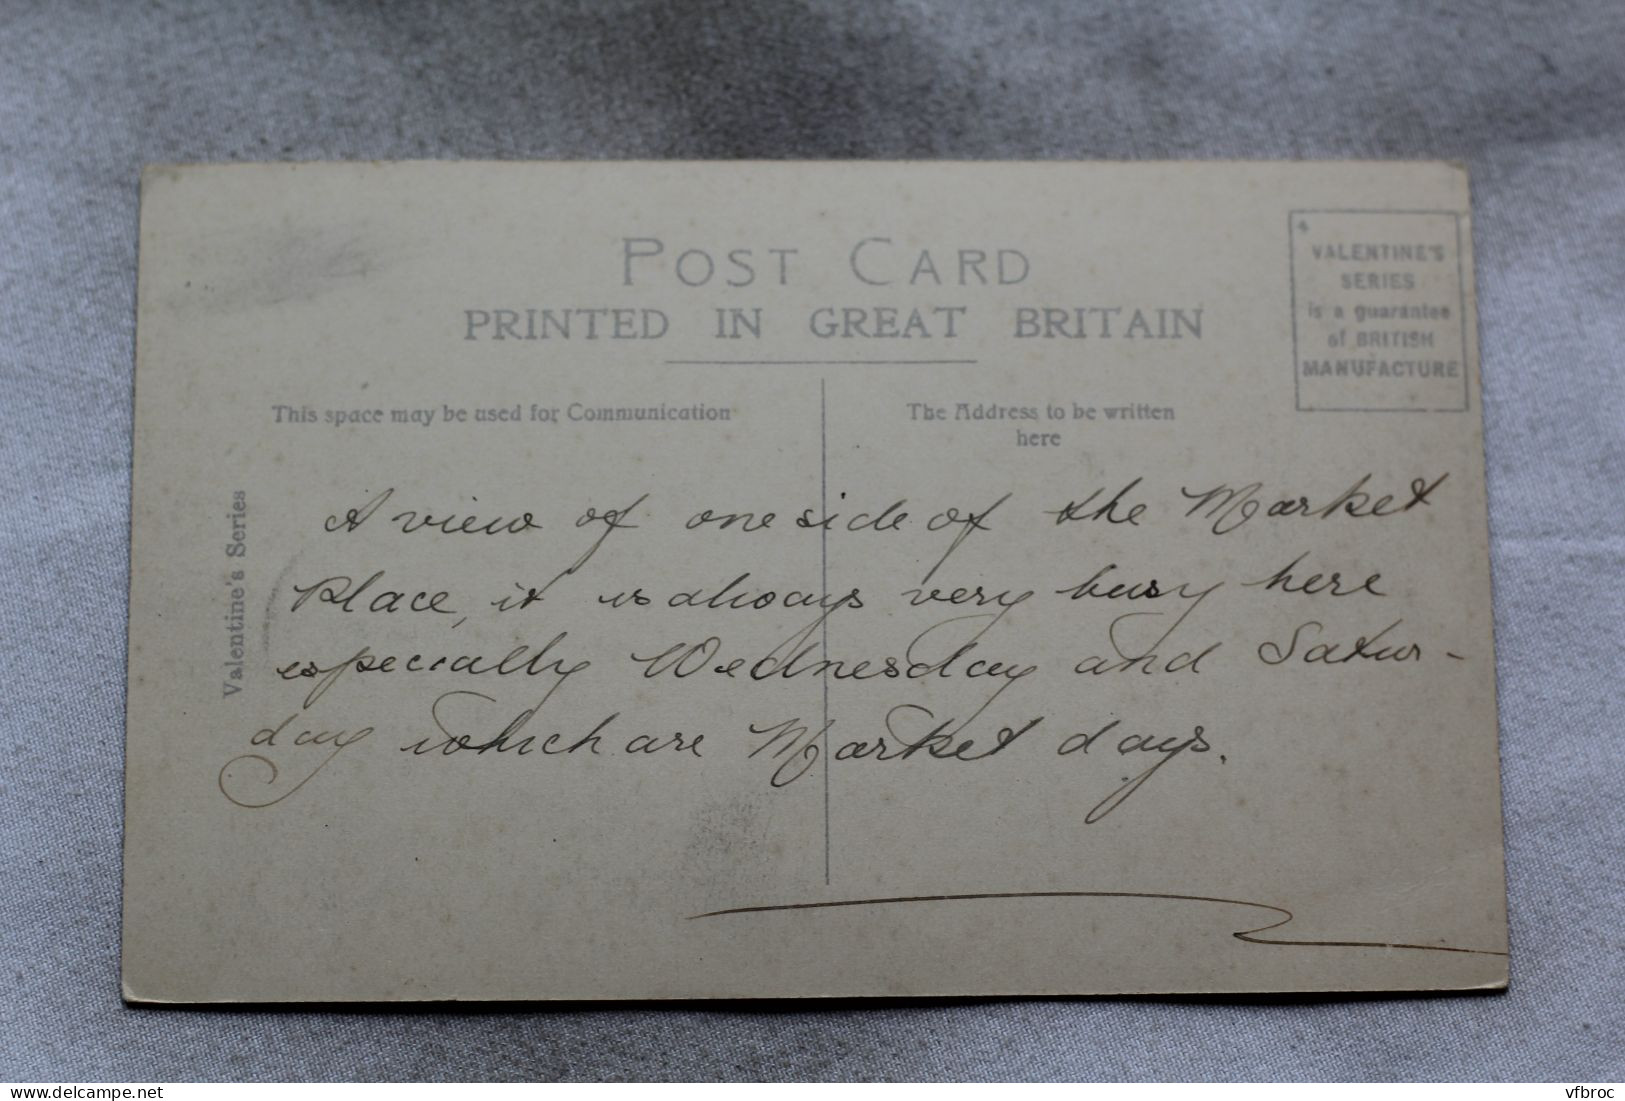 POST CARD
PRINTED IN GREAT BRITAIN
4
VALENTINE'S
SERIES
is a guarantee
of BRITISH
MANUFACTURE
This space may be used for Communication
The Address to be written
here
Valentine's Series
A view of one side of the Market
Place, it is always very busy here
especially Wednesday and Satur-
day which are Market days.
delcampe.net
vfbroc